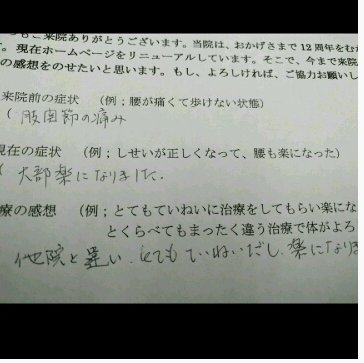 つもご来院ありがとうございます。当院は、おかげさまで12周年をむか
す。現在ホームページをリニューアルしています。そこで、今まで来院
の感想をのせたいと思います。もし、よろしければ、ご協力お願いし
来院前の症状 （例；腰が痛くて歩けない状態）
（ 股関節の痛み
現在の症状 （例；しせいが正しくなって、腰も楽になった）
（ 大部楽になりました.
療の感想 （例；とてもていねいに治療をしてもらい楽にな
とくらべてもまったく違う治療で体がよろ
他院と違い、とてもていねいだし、楽になりま